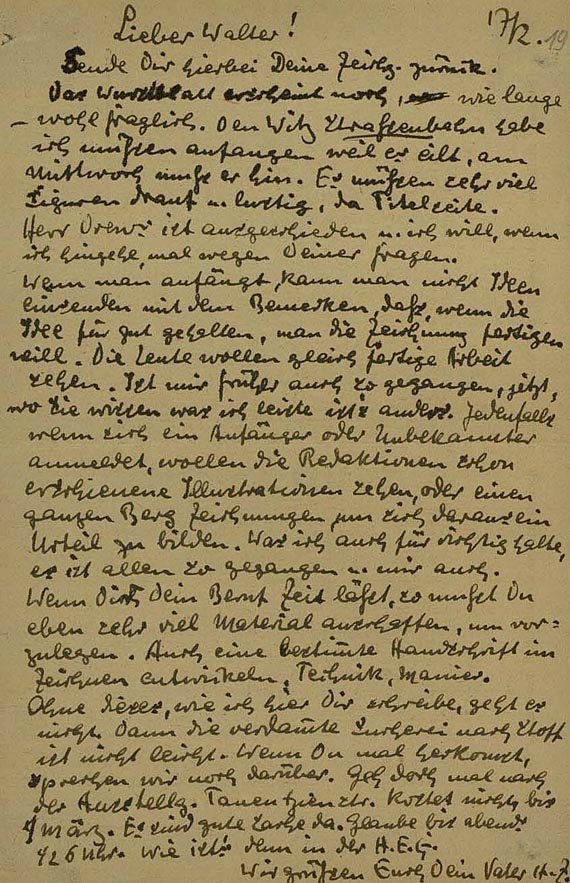 Lieber Walter! 17/2. 19
Sende Dir hierbei Deine Zeichg. zurück.
Das Wurstblatt erscheint noch, wie lange
– wohl fraglich. Den Witz Strassenbahn habe
ich müssen anfangen weil es eilt, am
Mittwoch muss er hin. Es müssen sehr viel
Figuren drauf u. lustig, da Titelseite.
Herr Drews ist ausgeschieden u. ich will, wenn
ich hingehe, mal wegen Deiner fragen.
Wenn man anfängt, kann man nicht Ideen
einsenden mit dem Bemerken, dass, wenn die
Idee für gut gehalten, man die Zeichnung fertigen
will. Die Leute wollen gleich fertige Arbeit
sehen. Ist mir früher auch so gegangen, jetzt,
wo sie wissen was ich leiste ist's anders. Jedenfalls
wenn sich ein Anfänger oder Unbekannter
anmeldet, wollen die Redaktionen schon
erschienene Illustrationen sehen, oder einen
ganzen Berg Zeichnungen um sich daraus ein
Urteil zu bilden. Was ich auch für richtig halte,
es ist allen so gegangen u. mir auch.
Wenn Dir Dein Beruf Zeit lässt, so musst Du
eben sehr viel Material anschaffen, um vor=
zulegen. Auch eine bestimte Handschrift im
Zeichnen entwickeln, Technik, Manier.
Ohne dieses, wie ich hier Dir schreibe, geht es
nicht. Dann die verdamte Sucherei nach Stoff
ist nicht leicht. Wenn Du mal herkomst,
sprechen wir noch darüber. Geh doch mal nach
der Ausstellg. Tauentzienstr. kostet nichts, bis
März. Es sind gute Sache da. Glaube bis abends
6 Uhr. Wie ist's denn in der A.E.G.
Wir grüssen Euch Dein Vater